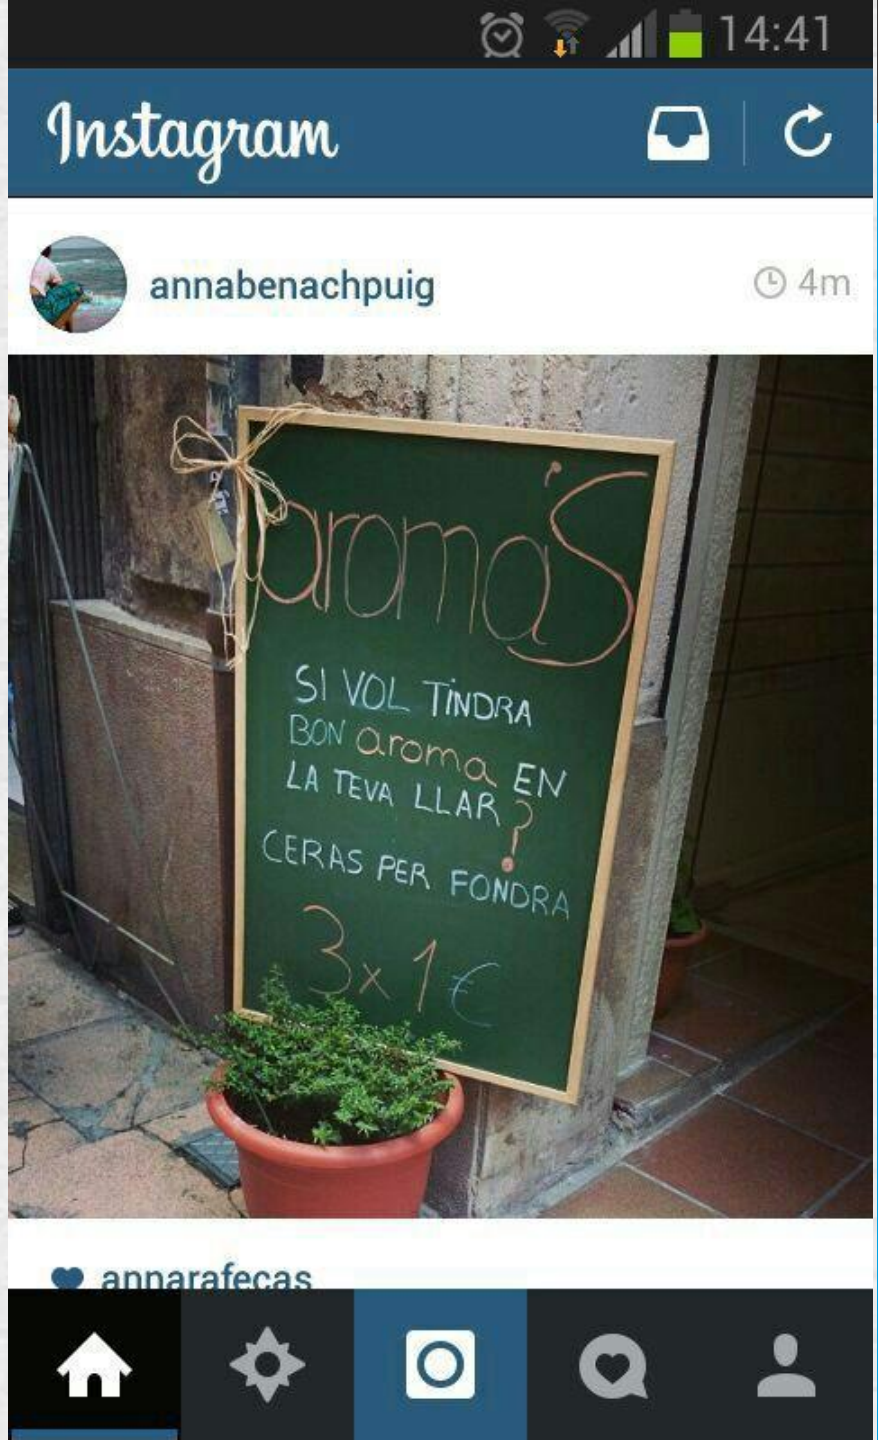 14:41
Instagram
annabenachpuig 4m
aroma'S
SI VOL TINDRA
BON aroma EN
LA TEVA LLAR?
CERAS PER FONDRA
3x1€
annarafecas